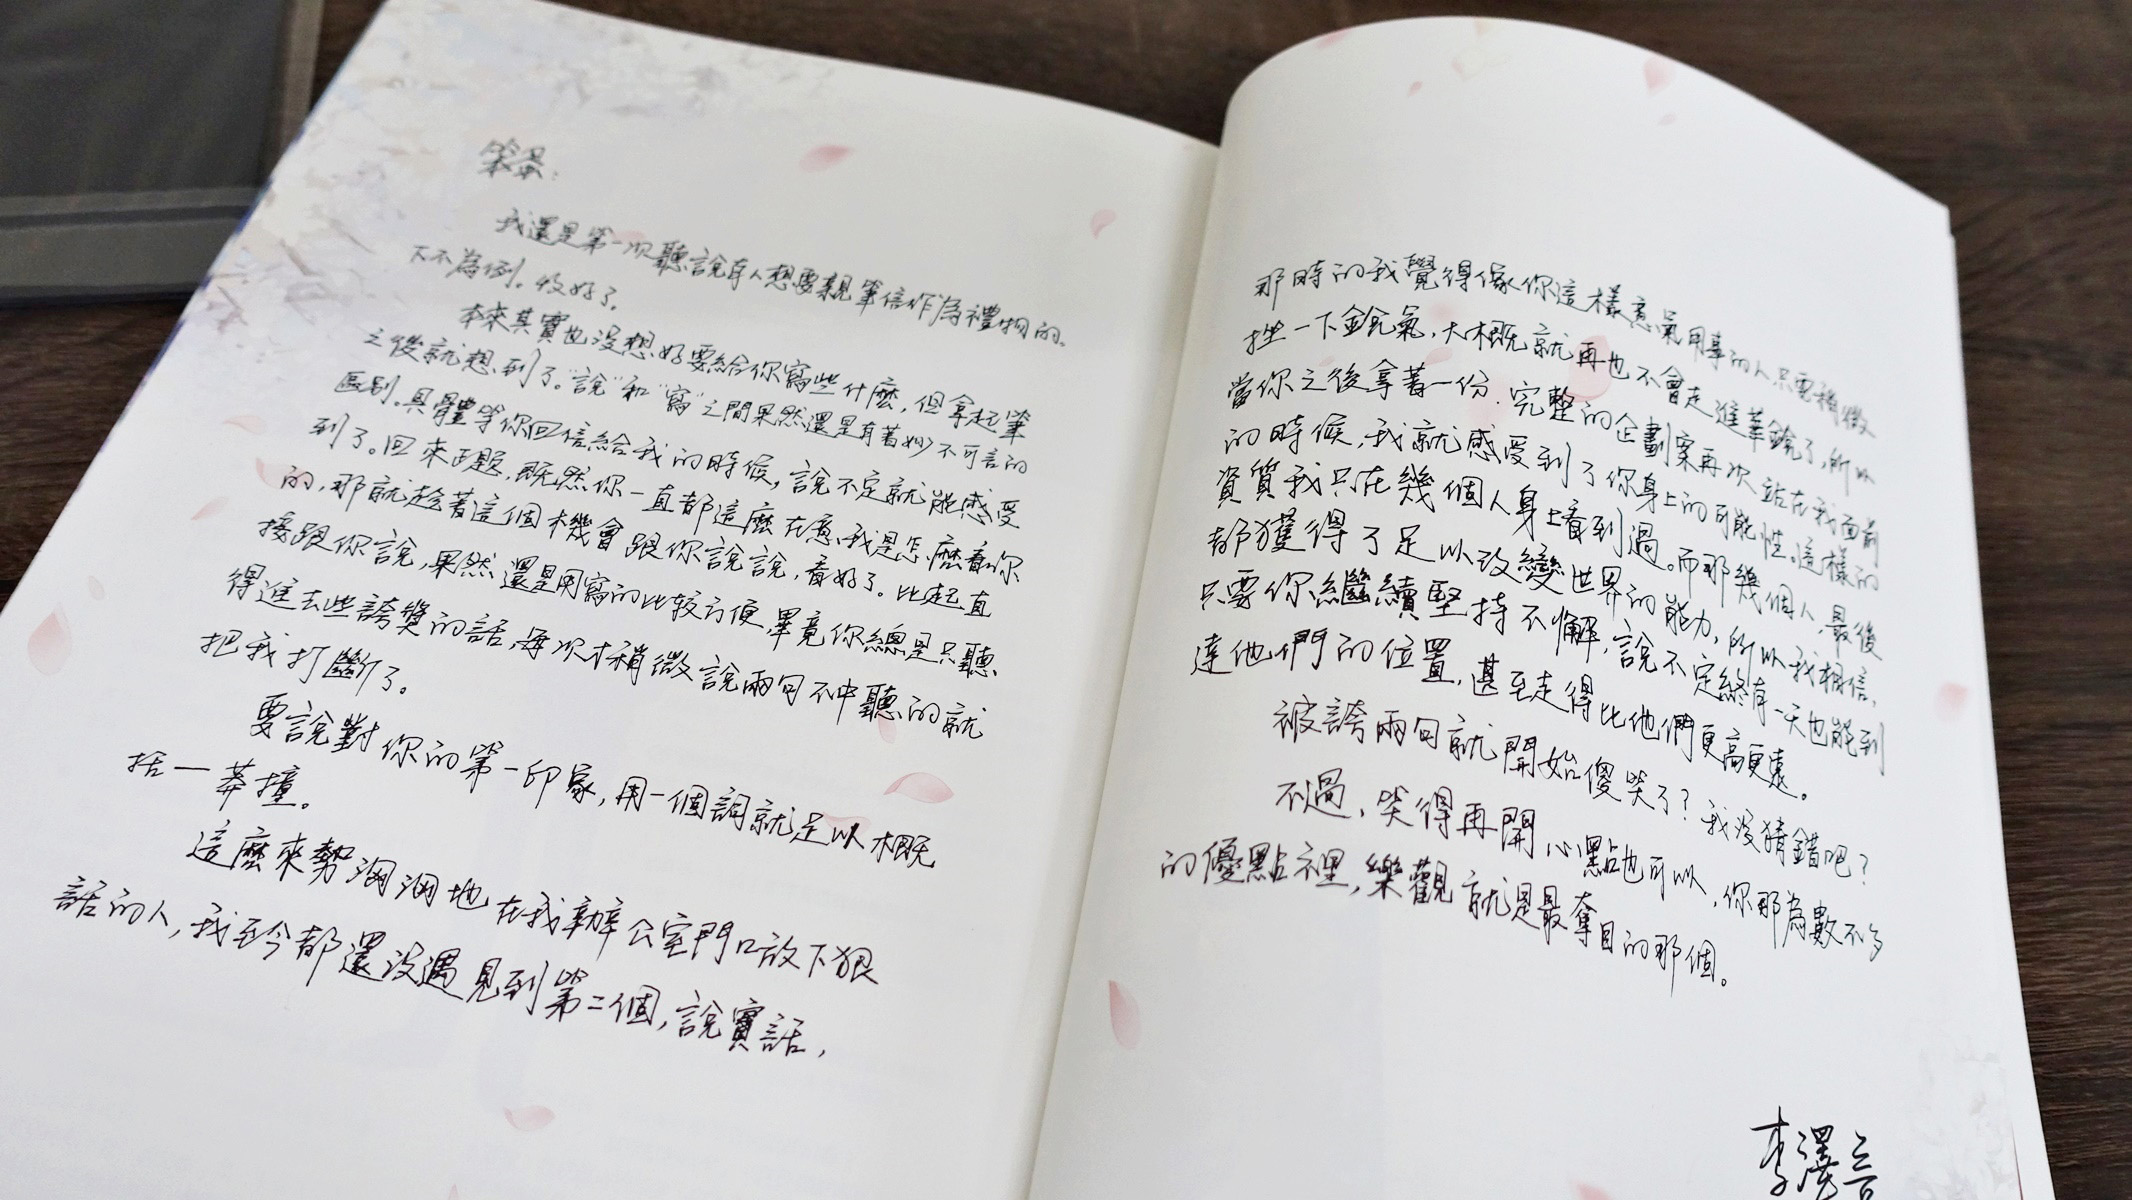 笨蛋：
我還是第一次聽說有人想要親筆信作為禮物的。
下不為例。收好了。
本來其實也沒想好要給你寫些什麼，但拿起筆
之後就想到了。“說”和“寫”之間果然還是有著妙不可言的
區別。具體等你回信給我的時候，說不定就能感受
到了。回來正題，既然你一直都這麼在意我是怎麼看你
的，那就趁著這個機會跟你說說，看好了。比起直
接跟你說，果然還是用寫的比較方便，畢竟你總是只聽
得進去些誇獎的話，每次才稍微說兩句不中聽的就
把我打斷了。
要說對你的第一印象，用一個詞就足以概
括一莽撞。
這麼來勢洶洶地在我辦公室門口放下狠
話的人，我至今都還沒遇見到第二個，說實話，
那時的我覺得像你這樣意氣用事的人只要稍微
挫一下銳氣，大概就再也不會走進華銳了，所以
當你之後拿著一份完整的企劃案再次站在我面前
的時候，我就感受到了你身上的可能性。這樣的
資質我只在幾個人身上看到過。而那幾個人，最後
都獲得了足以改變世界的能力，所以我相信，
只要你繼續堅持不懈，說不定終有一天也能到
達他們的位置，甚至走得比他們更高更遠。
被誇兩句就開始傻笑了？我沒猜錯吧？
不過，笑得再開心點也可以，你那為數不多
的優點裡，樂觀就是最奪目的那個。
李澤言